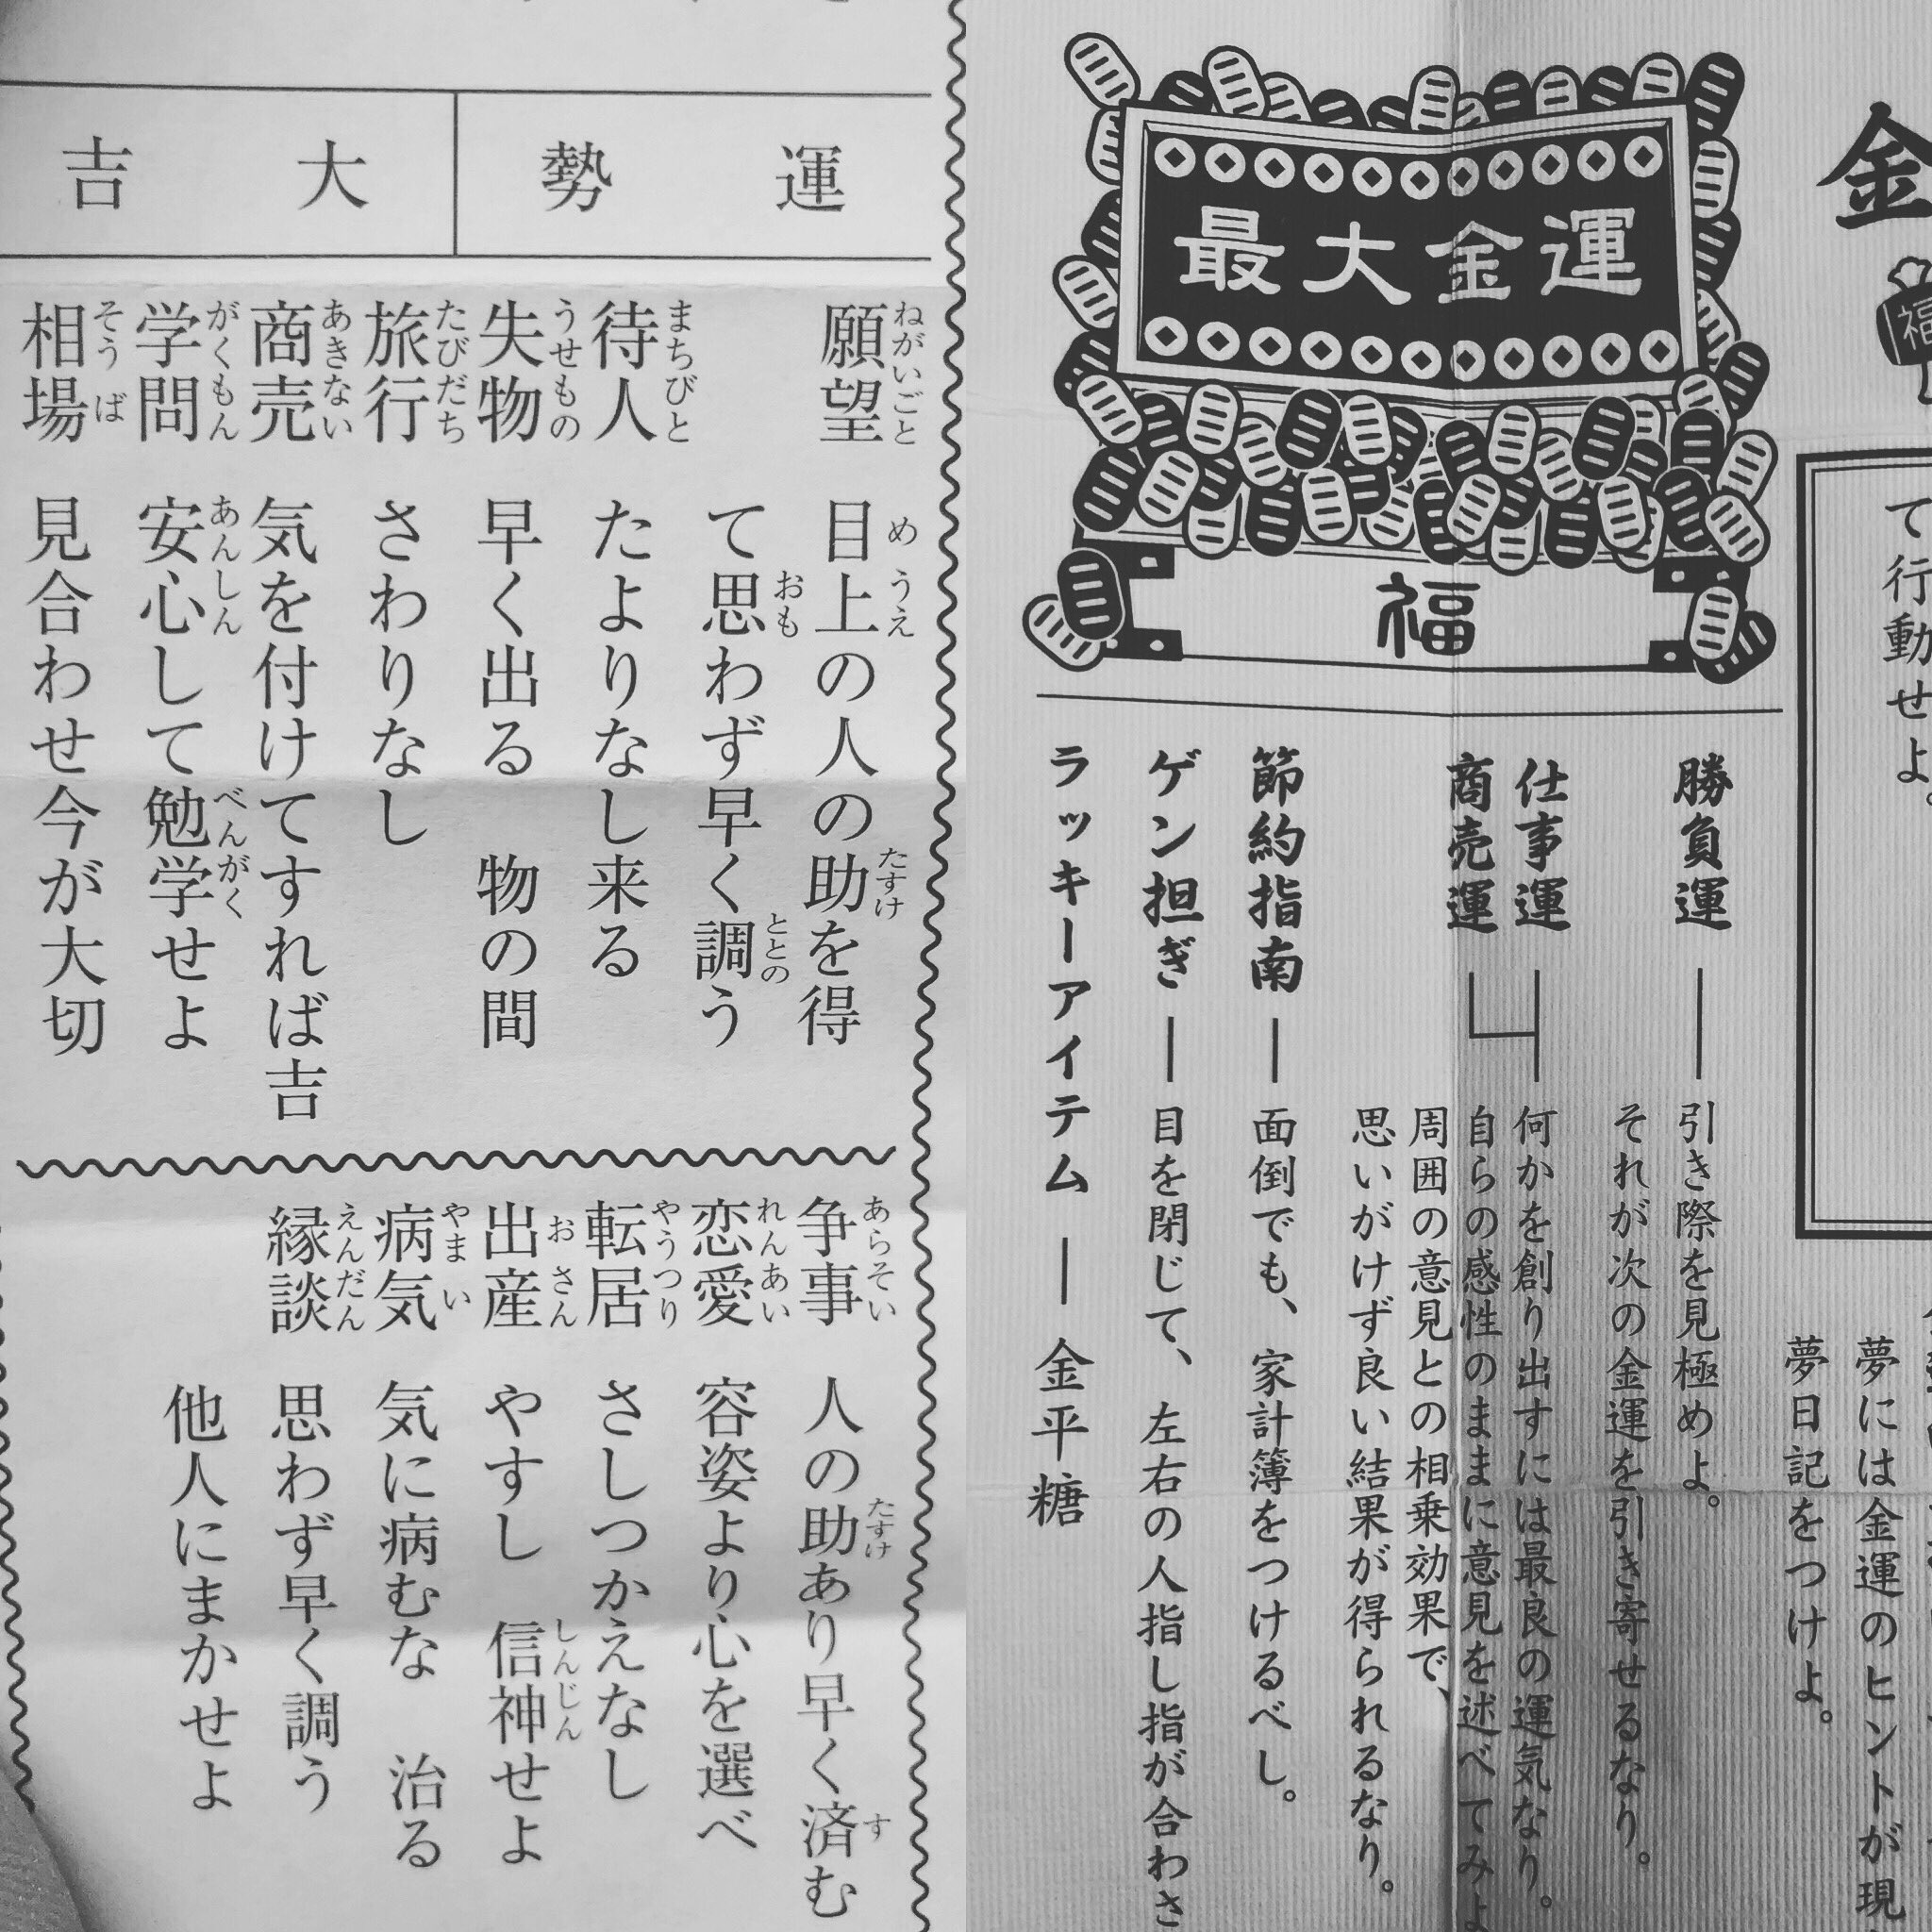 運勢 大吉
願望 目上の人の助を得
て思わず早く調う
待人 たよりなし来る
失物 早く出る 物の間
旅行 さわりなし
商売 気を付けてすれば吉
学問 安心して勉学せよ
相場 見合わせ今が大切
争事 人の助あり早く済む
恋愛 容姿より心を選べ
転居 さしつかえなし
出産 やすし 信神せよ
病気 気に病むな 治る
縁談 思わず早く調う
他人にまかせよ
ねがいごと
めうえ
たすけ
おも
ととの
まちびと
うせもの
たびだち
あきない
がくもん
あんしん
べんがく
そうば
あらそい
たすけ
す
れんあい
やうつり
おさん
しんじん
やまい
えんだん
金
福
最大金運
福
て行動せよ。
夢には金運のヒントが現
夢日記をつけよ。
勝負運―引き際を見極めよ。
それが次の金運を引き寄せるなり。
仕事運
商売運
何かを創り出すには最良の運気なり。
自らの感性のままに意見を述べてみよ
周囲の意見との相乗効果で、
思いがけず良い結果が得られるなり。
節約指南―面倒でも、家計簿をつけるべし。
ゲン担ぎ―目を閉じて、左右の人指し指が合わさ
ラッキーアイテム―金平糖